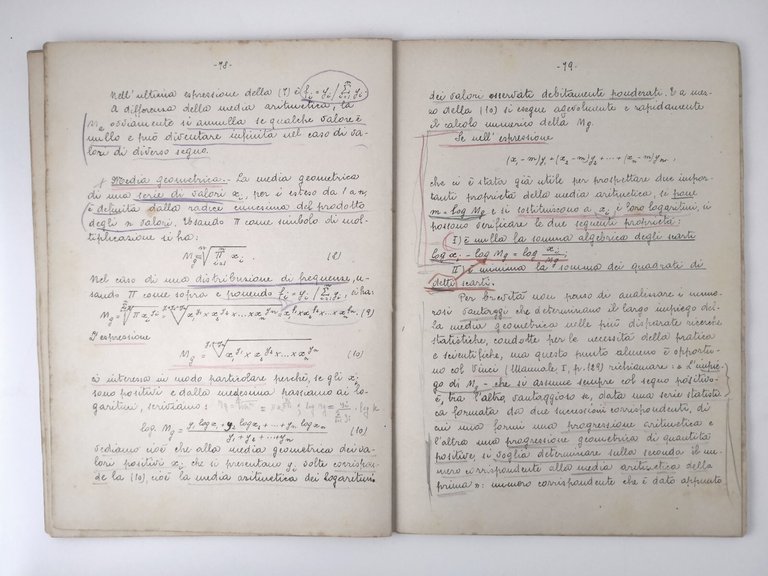 -78-
Nell'ultima espressione della (7) è f_i = y_i / Σ y_i.
A differenza della media aritmetica, la
M_a ovviamente si annulla se qualche valore è
nullo e può diventare infinita nel caso di va-
lori di diverso segno.
f) Media geometrica.- La media geometrica
di una serie di valori x_i, per i esteso da 1 a n,
è definita dalla radice ennesima del prodotto
degli n valori. Usando π come simbolo di mol-
tiplicazione si ha:
M_g = ⁿ√ π x_i . (8)
Nel caso di una distribuzione di frequenze, u-
sando π come sopra e ponendo f_i = y_i / Σ y_i, si ha:
(9)
L'espressione
M_g = √ x_1^{y_1} × x_2^{y_2} × ... × x_n^{y_n} (10)
ci interessa in modo particolare perché, se gli x_i
sono positivi e dalla medesima passiamo ai lo-
garitmi, scriviamo:
log M_g = (y_1 log x_1 + y_2 log x_2 + ... + y_n log x_n) / (y_1 + y_2 + ... + y_n) (10)
Vediamo cioè che alla media geometrica dei va-
lori positivi x_i che si presentano y_i volte corrispon-
de la (10), cioè la media aritmetica dei logaritmi
-79-
dei valori osservati debitamente ponderati. E a mez-
zo della (10) si esegue agevolmente e rapidamente
il calcolo numerico della M_g.
Se nell'espressione
(x_1 - m)y_1 + (x_2 - m)y_2 + ... + (x_n - m)y_n,
che ci è stata già utile per prospettare due impor-
tanti proprietà della media aritmetica, si pone
m = log M_g e si sostituiscono a x_i i loro logaritmi, si
possono verificare le due seguenti proprietà:
I) è nulla la somma algebrica degli scarti
log x_i - log M_g = log x_i / M_g;
II) è minima la somma dei quadrati di
detti scarti.
Per brevità non penso di analizzare i nume-
rosi vantaggi che determinano il largo impiego del-
la media geometrica nelle più disparate ricerche
statistiche, condotte per le necessità della pratica
e scientifiche, ma questo punto almeno è opportu-
no col Vinci (Manuale I, p. 129) richiamare: « L'impie-
go di M_g - che si assume sempre col segno positivo -
è, tra l'altro, vantaggioso se, data una serie statisti-
ca formata da due successioni corrispondenti, di
cui una formi una progressione aritmetica e
l'altra una progressione geometrica di quantità
positive, si voglia determinare sulla seconda il nu-
mero corrispondente alla media aritmetica della
prima »: numero corrispondente che è dato appunto